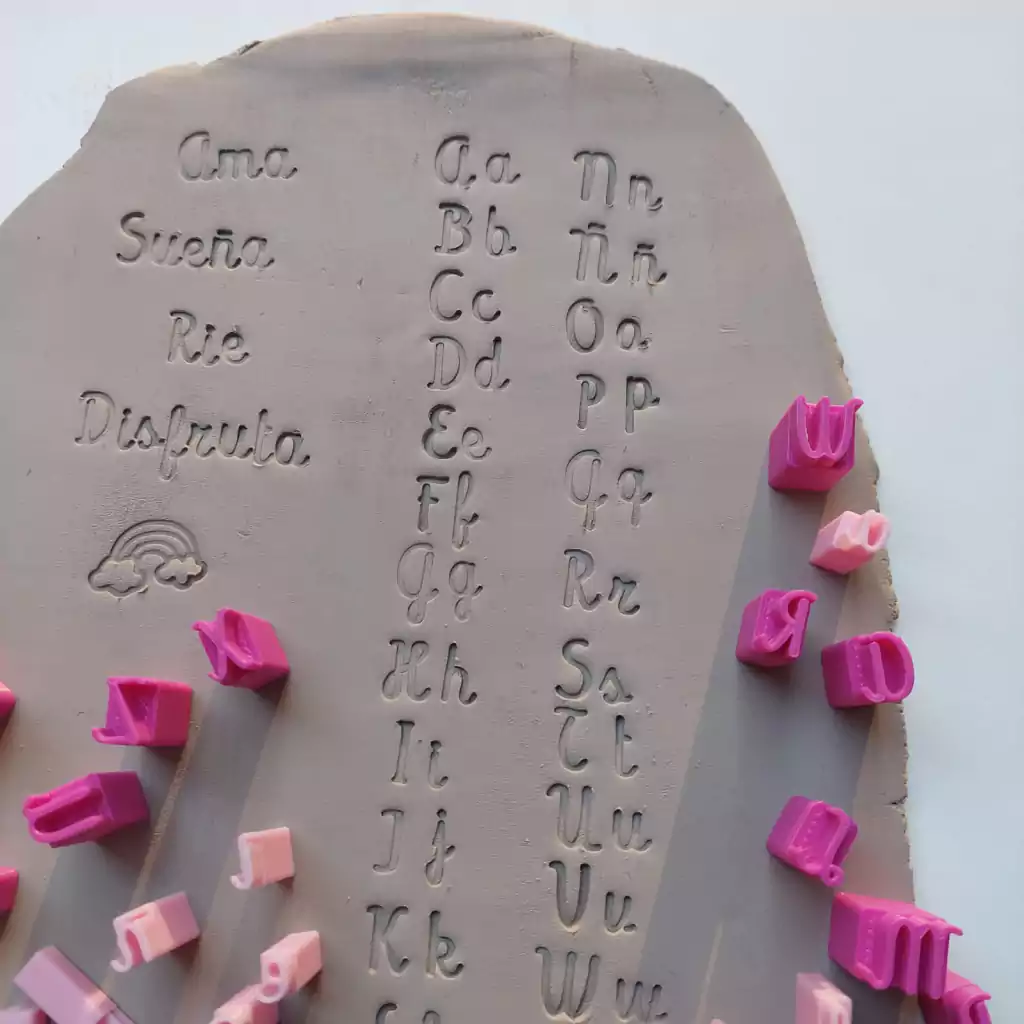 Ama
Sueña
Rie
Disfruta
Aa
Bb
Cc
Dd
Ee
Ff
Gg
Hh
Ii
Jj
Kk
Nn
Ññ
Oa
Pp
Qq
Rr
Ss
Tt
Uu
Vv
Ww